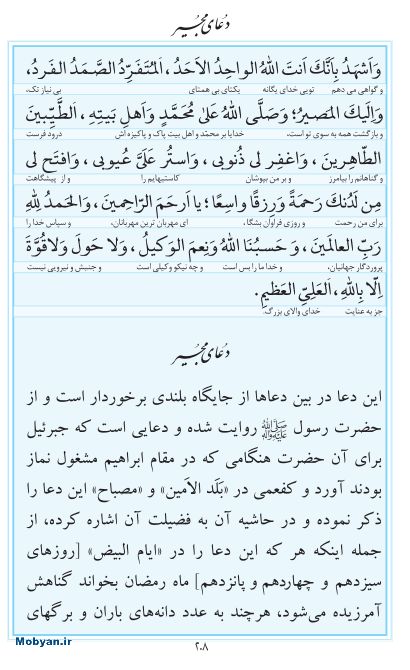 دعای مجیر
وَاَشهَدُ بِاَنَّكَ اَنتَ اللهُ الواحِدُ الاَحَدُ، اَلمُتَفَرِّدُ الصَّمَدُ الفَردُ،
و گواهی می دهم تویی خدای یگانه یکتای بی همتای بی نیاز تک،
وَاِلَيكَ المَصيرُ؛ وَصَلَّی اللهُ عَلیٰ مُحَمَّدٍ وَاَهلِ بَيتِهِ، اَلطَّيِّبينَ
و بازگشت همه به سوی تو است، خدایا بر محمّد و اهل بیت پاک و پاکیزه اش درود فرست
الطّاهِرينَ، وَاغفِر لی ذُنوبی، وَاستُر عَلَیَّ عُيوبی، وَافتَح لی
و گناهانم را بیامرز و بر من بپوشان کاستیهایم را و از پیشگاهت
مِن لَدُنكَ رَحمَةً وَرِزقًا واسِعًا؛ يا اَرحَمَ الرّاحِمينَ، وَالحَمدُ لِلّهِ
برای من رحمت و روزی فراوان بگشا، ای مهربان ترین مهربانان، و سپاس خدا را
رَبِّ العالَمينَ، وَ حَسبُنَا اللهُ وَنِعمَ الوَكيلُ، وَلا حَولَ وَلاقُوَّةَ
پروردگار جهانیان، و خدا ما را بس است و چه نیکو وکیلی است و جنبش و نیرویی نیست
اِلّا بِاللهِ، اَلعَلِیِّ العَظيمِ.
جز به عنایت خدای والای بزرگ.
دعای مجیر
این دعا در بین دعاها از جایگاه بلندی برخوردار است و از
حضرت رسول ﷺ روایت شده و دعایی است که جبرئیل
برای آن حضرت هنگامی که در مقام ابراهیم مشغول نماز
بودند آورد و کفعمی در «بَلَد الاَمین» و «مصباح» این دعا را
ذکر نموده و در حاشیه آن به فضیلت آن اشاره کرده، از
جمله اینکه هر که این دعا را در «ایام البیض» [روزهای
سیزدهم و چهاردهم و پانزدهم] ماه رمضان بخواند گناهش
آمرزیده می‌شود، هرچند به عدد دانه‌های باران و برگهای
۲۰۸
Mobyan.ir